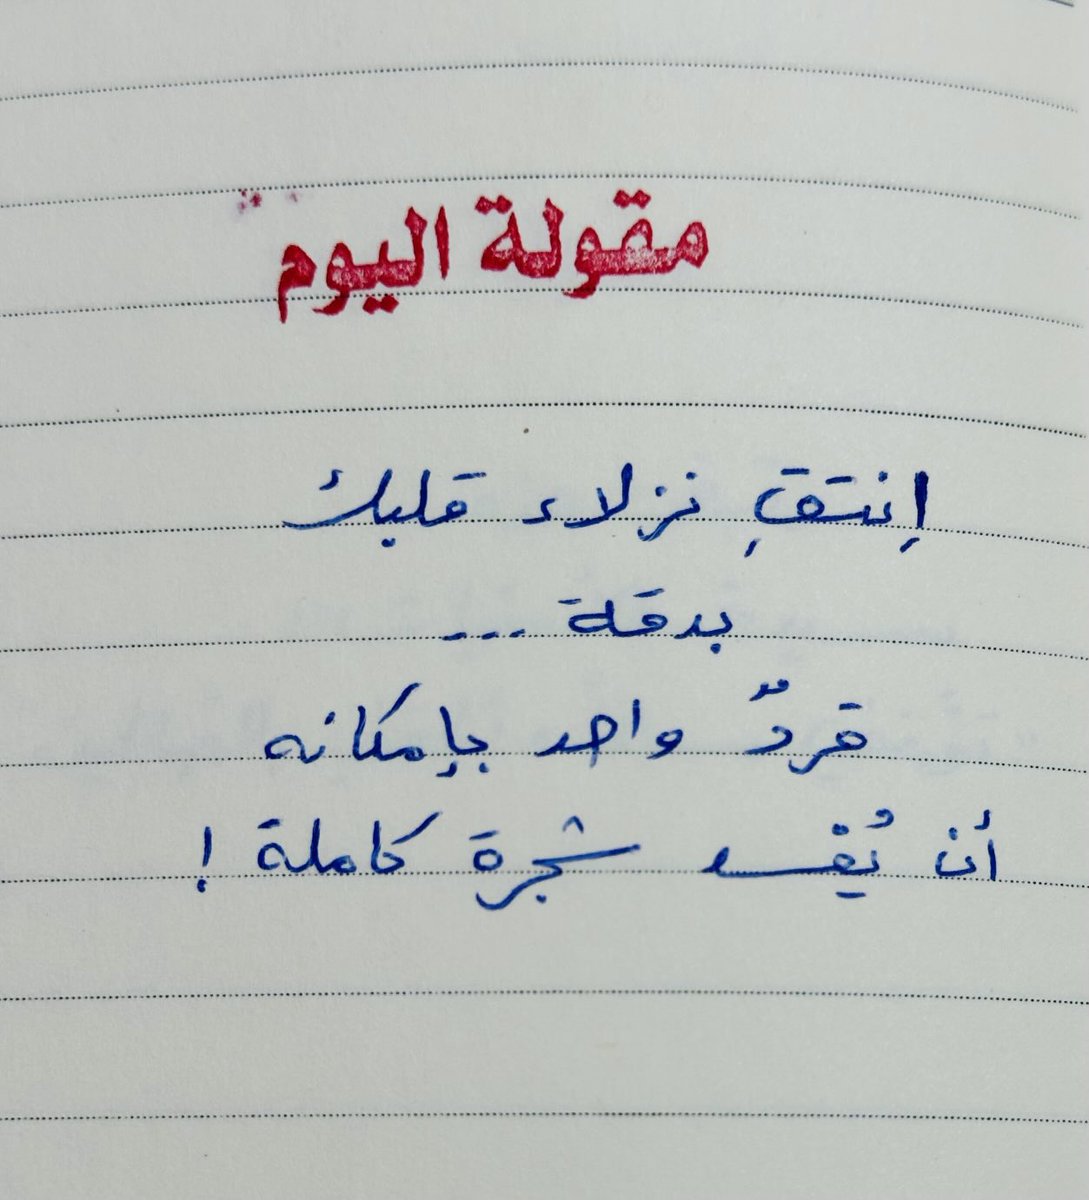 مقولة اليوم
إنتقِ نزلاء قلبك
بدقة ...
قردٌ واحد بإمكانه
أن يُفسد شجرة كاملة !